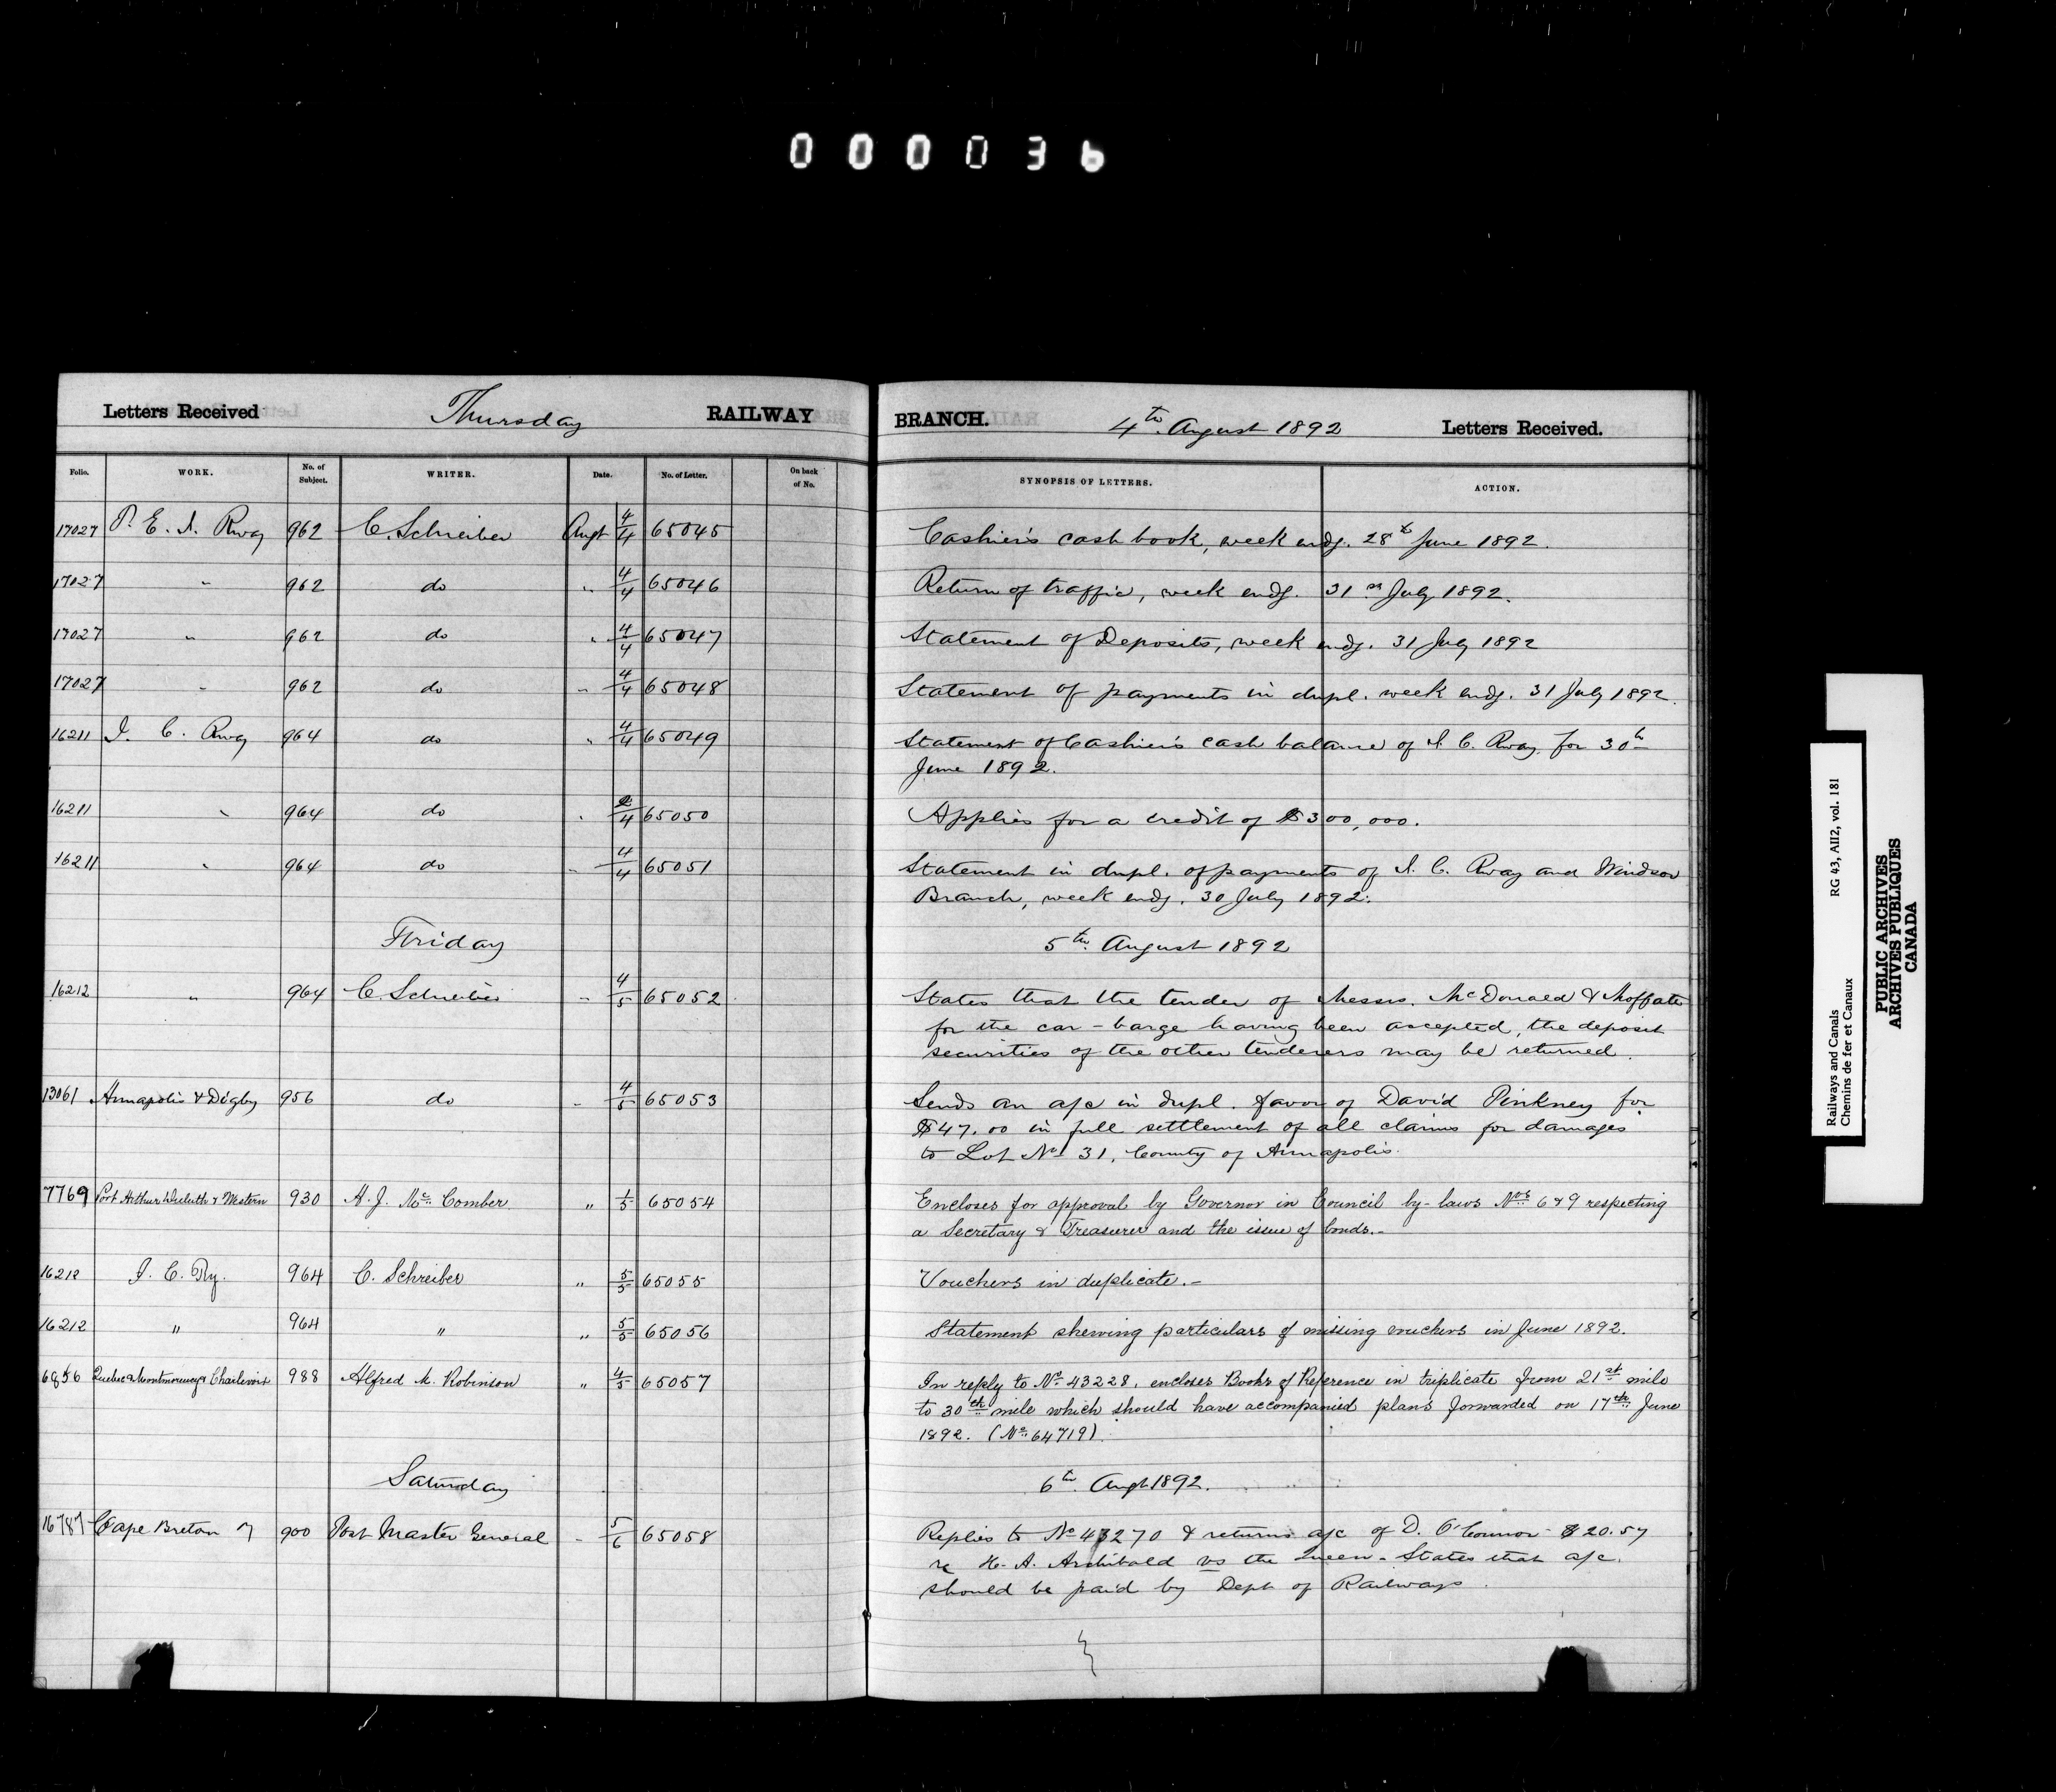 000036
Letters Received Thursday RAILWAY BRANCH. 4th August 1892 Letters Received.
Folio. WORK. No. of Subject. WRITER. Date. No. of Letter. On back of No. SYNOPSIS OF LETTERS. ACTION.
17027 P. E. I. Rway 962 C. Schreiber Augt 4/4 65045 Cashier's cash book, week endg. 28th June 1892.
17027 " 962 do " 4/4 65046 Return of traffic, week endg. 31st July 1892.
17027 " 962 do " 4/4 65047 Statement of Deposits, week endg. 31 July 1892
17027 " 962 do " 4/4 65048 Statement of payments in dupl. week endg. 31 July 1892.
16211 I. C. Rway 964 do " 4/4 65049 Statement of Cashier's cash balance of I. C. Rway. for 30th
June 1892.
16211 " 964 do " 2/4 65050 Applies for a credit of $300,000.
16211 " 964 do " 4/4 65051 Statement in dupl. of payments of I. C. Rway and Windsor
Branch, week endg. 30 July 1892.
Friday 5th August 1892
16212 " 964 C. Schreiber " 4/5 65052 States that the tender of Messrs. McDonald & Moffatt
for the car-barge having been accepted, the deposit
securities of the other tenderers may be returned.
13061 Annapolis & Digby 956 do " 4/5 65053 Sends an a/c in dupl. favor of David Pinkney for
$47.00 in full settlement of all claims for damages
to Lot No 31, County of Annapolis.
7769 Port Arthur Duluth & Western 930 A. J. McComber " 1/5 65054 Encloses for approval by Governor in Council by-laws Nos 6 & 9 respecting
a Secretary & Treasurer and the issue of bonds.-
16212 I. C. Ry. 964 C. Schreiber " 5/5 65055 Vouchers in duplicate.-
16212 " 964 " " 5/5 65056 Statement shewing particulars of missing vouchers in June 1892.
6856 Quebec Montmorency & Charlevoix 988 Alfred M. Robinson " 4/5 65057 In reply to No 43228, encloses Books of Reference in triplicate from 21st mile
to 30th mile which should have accompanied plans forwarded on 17th June
1892. (No 64719)
Saturday 6th Augt 1892.
16787 Cape Breton Ry 900 Post Master General " 5/6 65058 Replies to No 43270 & returns a/c of D. O'Connor $20.57
re H. A. Archibald vs the Queen - States that a/c.
should be paid by Dept of Railways.
Railways and Canals RG 43, AII2, vol. 181
Chemins de fer et Canaux
PUBLIC ARCHIVES
ARCHIVES PUBLIQUES
CANADA